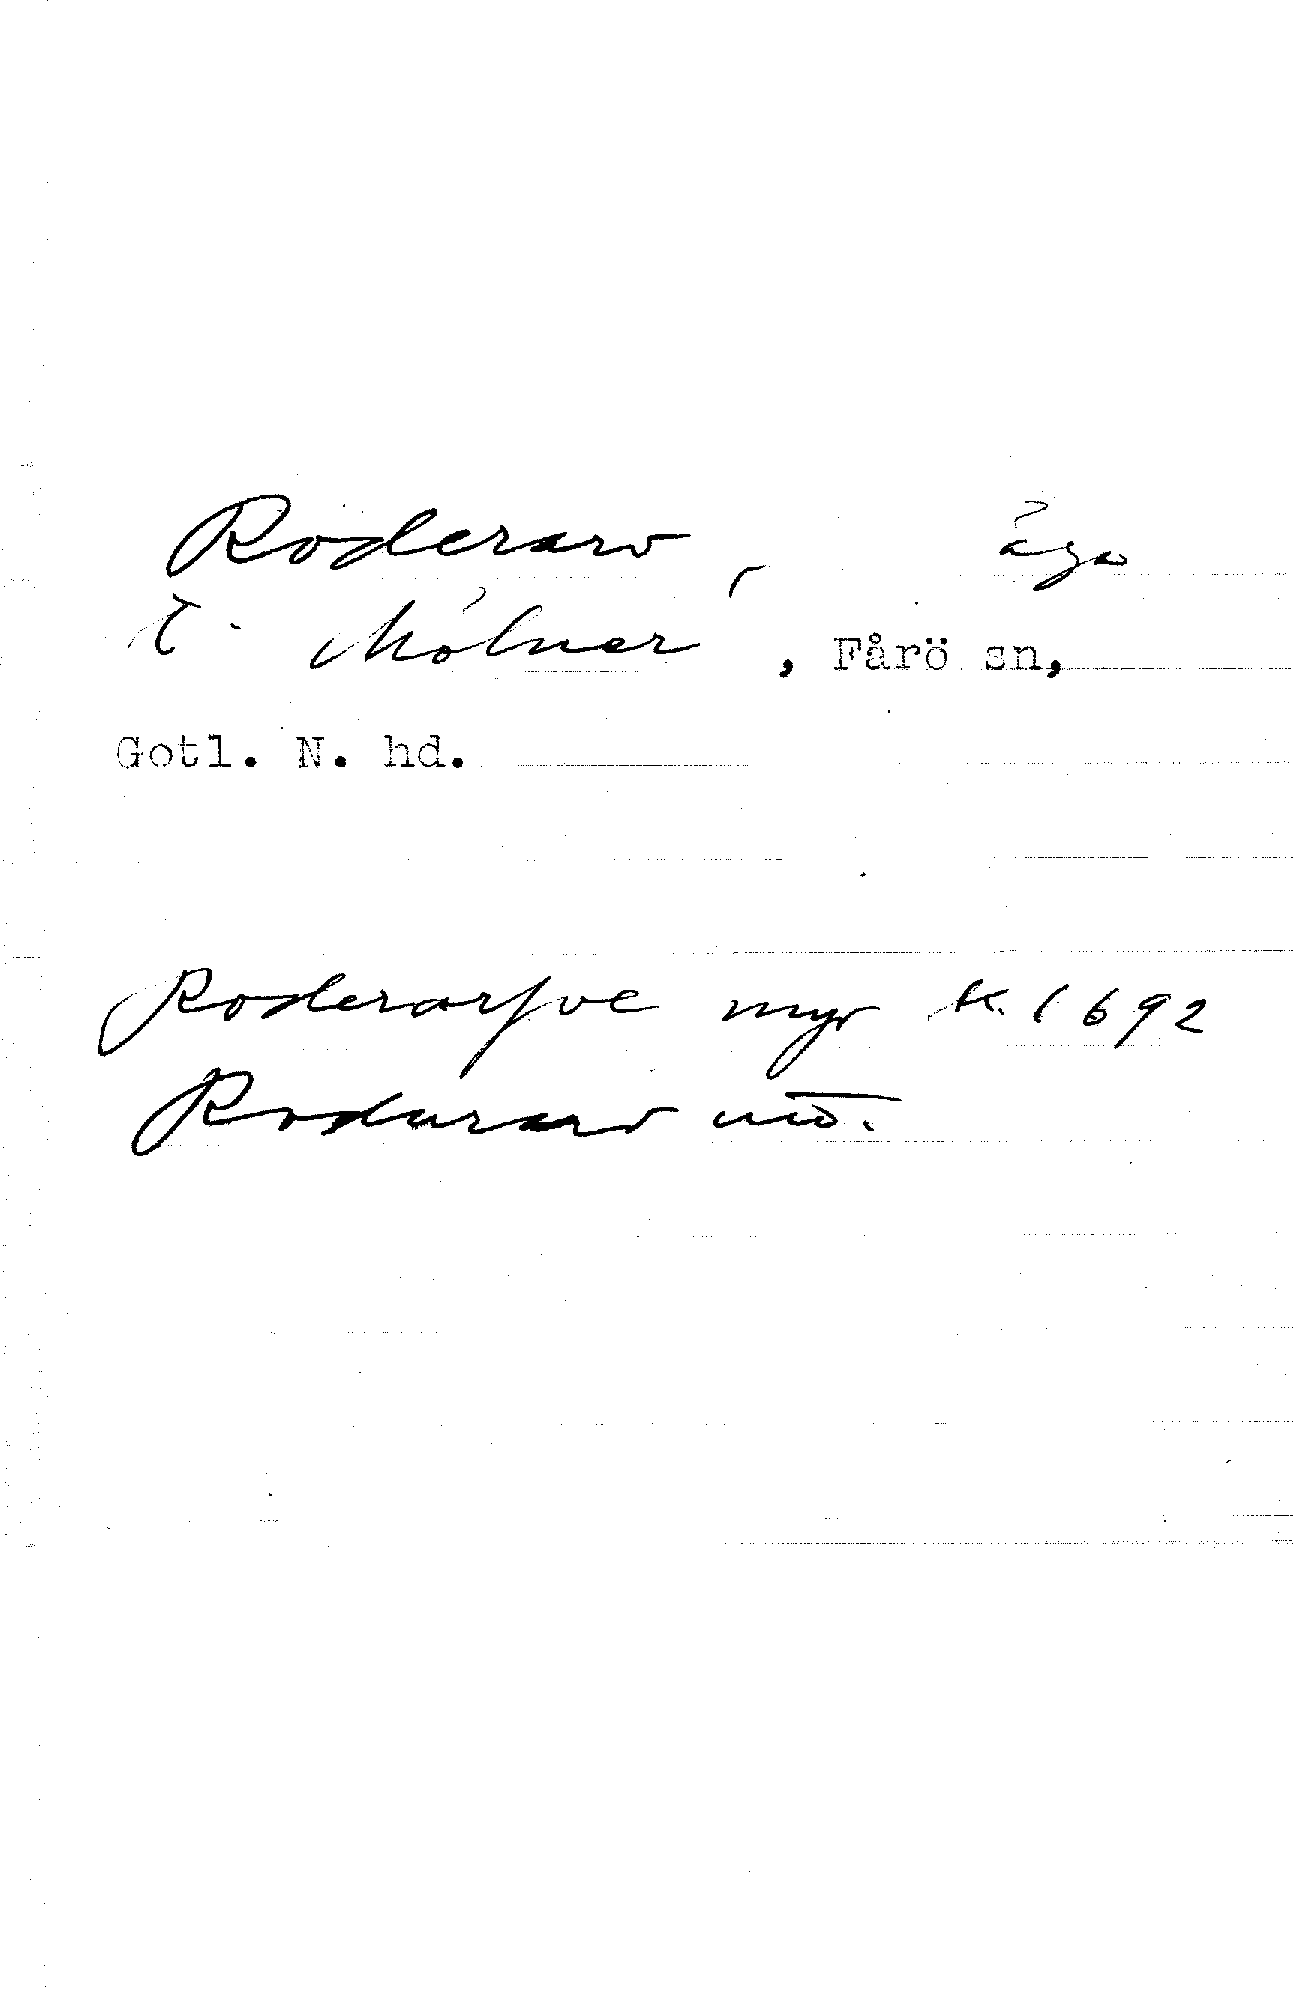 Roderarv, äga
t. Mölner, Fårö sn,
Gotl. N. hd.
Roderarfve myr K. 1692
Roderarv